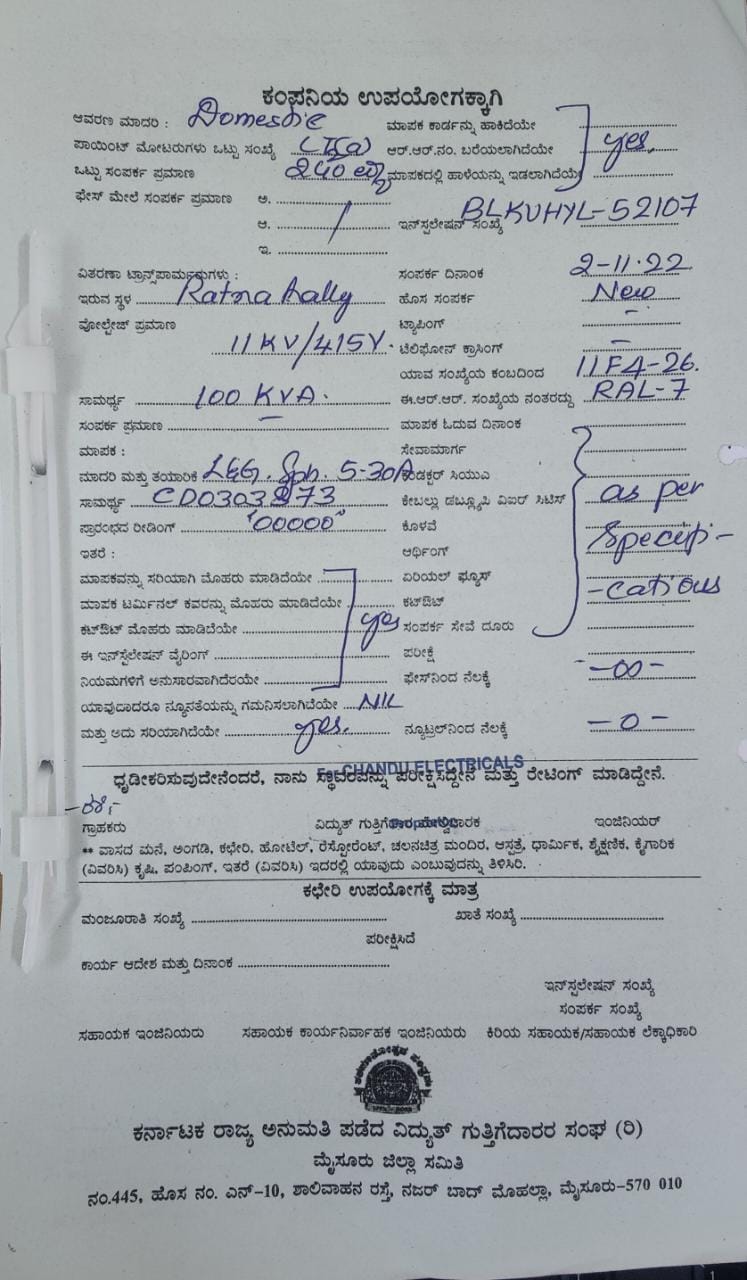 ಕಂಪನಿಯ ಉಪಯೋಗಕ್ಕಾಗಿ
ಆವರಣ ಮಾದರಿ : Domestic ಮಾಪಕ ಕಾರ್ಡನ್ನು ಹಾಕಿದೆಯೇ
ಪಾಯಿಂಟ್ ಮೋಟರುಗಳು ಒಟ್ಟು ಸಂಖ್ಯೆ ಆರ್.ಆರ್.ನಂ. ಬರೆಯಲಾಗಿದೆಯೇ yes.
ಒಟ್ಟು ಸಂಪರ್ಕ ಪ್ರಮಾಣ 240 ಮಾಪಕದಲ್ಲಿ ಹಾಳೆಯನ್ನು ಇಡಲಾಗಿದೆಯೇ
ಫೇಸ್ ಮೇಲೆ ಸಂಪರ್ಕ ಪ್ರಮಾಣ ಅ.
ಆ. ಇನ್‌ಸ್ಟಲೇಷನ್ ಸಂಖ್ಯೆ BLKVHYL-52107
ಇ.
ವಿತರಣಾ ಟ್ರಾನ್ಸ್‌ಪಾರ್ಮರುಗಳು : ಸಂಪರ್ಕ ದಿನಾಂಕ 2-11-22
ಇರುವ ಸ್ಥಳ Ratnahally ಹೊಸ ಸಂಪರ್ಕ New
ವೋಲ್ಟೇಜ್ ಪ್ರಮಾಣ ಟ್ಯಾಪಿಂಗ್ -
11KV/415V. ಟೆಲಿಫೋನ್ ಕ್ರಾಸಿಂಗ್ -
ಯಾವ ಸಂಖ್ಯೆಯ ಕಂಬದಿಂದ 11F4-26.
ಸಾಮರ್ಥ್ಯ 100 KVA. ಈ.ಆರ್.ಆರ್. ಸಂಖ್ಯೆಯ ನಂತರದ್ದು RAL-7
ಸಂಪರ್ಕ ಪ್ರಮಾಣ - ಮಾಪಕ ಓದುವ ದಿನಾಂಕ
ಮಾಪಕ : ಸೇವಾಮಾರ್ಗ
ಮಾದರಿ ಮತ್ತು ತಯಾರಿಕೆ L&G. Sph. 5-30A ಕಂಡಕ್ಟರ್ ಸಿಯುಎ
ಸಾಮರ್ಥ್ಯ ಕೇಬಲ್ಲು ಡಬ್ಲ್ಯೂಪಿ ವಿಐರ್ ಸಿಟಿಸ್ as per
ಪ್ರಾರಂಭದ ರೀಡಿಂಗ್ "00000" ಕೊಳವೆ Specifi-
ಇತರೆ : ಆರ್ಥಿಂಗ್
ಮಾಪಕವನ್ನು ಸರಿಯಾಗಿ ಮೊಹರು ಮಾಡಿದೆಯೇ ಏರಿಯಲ್ ಫ್ಯೂಸ್ -cations
ಮಾಪಕ ಟರ್ಮಿನಲ್ ಕವರನ್ನು ಮೊಹರು ಮಾಡಿದೆಯೇ ಕಟ್‌ಔಟ್
ಕಟ್‌ಔಟ್ ಮೊಹರು ಮಾಡಿದೆಯೇ yes ಸಂಪರ್ಕ ಸೇವೆ ದೂರು
ಈ ಇನ್‌ಸ್ಟೆಲೇಷನ್ ವೈರಿಂಗ್ ಪರೀಕ್ಷೆ
ನಿಯಮಗಳಿಗೆ ಅನುಸಾರವಾಗಿದೆರಯೇ ಫೇಸ್‌ನಿಂದ ನೆಲಕ್ಕೆ -00-
ಯಾವುದಾದರೂ ನ್ಯೂನತೆಯನ್ನು ಗಮನಿಸಲಾಗಿದೆಯೇ NIL
ಮತ್ತು ಅದು ಸರಿಯಾಗಿದೆಯೇ yes. ನ್ಯೂಟ್ರಲ್‌ನಿಂದ ನೆಲಕ್ಕೆ -0-
CHANDU ELECTRICALS
ಧೃಡೀಕರಿಸುವುದೇನೆಂದರೆ, ನಾನು ಸ್ಥಾವರವನ್ನು ಪರೀಕ್ಷಿಸಿದ್ದೇನೆ ಮತ್ತು ರೇಟಿಂಗ್ ಮಾಡಿದ್ದೇನೆ.
ಗ್ರಾಹಕರು ವಿದ್ಯುತ್ ಇಂಜಿನಿಯರ್
** ವಾಸದ ಮನೆ, ಅಂಗಡಿ, ಕಛೇರಿ, ಹೋಟೆಲ್, ರೆಸ್ಟೋರೆಂಟ್, ಚಲನಚಿತ್ರ ಮಂದಿರ, ಆಸ್ಪತ್ರೆ, ಧಾರ್ಮಿಕ, ಶೈಕ್ಷಣಿಕ, ಕೈಗಾರಿಕ
(ವಿವರಿಸಿ) ಕೃಷಿ, ಪಂಪಿಂಗ್, ಇತರೆ (ವಿವರಿಸಿ) ಇದರಲ್ಲಿ ಯಾವುದು ಎಂಬುವುದನ್ನು ತಿಳಿಸಿರಿ.
ಕಛೇರಿ ಉಪಯೋಗಕ್ಕೆ ಮಾತ್ರ
ಮಂಜೂರಾತಿ ಸಂಖ್ಯೆ ಖಾತೆ ಸಂಖ್ಯೆ
ಪರೀಕ್ಷಿಸಿದೆ
ಕಾರ್ಯ ಆದೇಶ ಮತ್ತು ದಿನಾಂಕ
ಇನ್‌ಸ್ಟಲೇಷನ್ ಸಂಖ್ಯೆ
ಸಂಪರ್ಕ ಸಂಖ್ಯೆ
ಸಹಾಯಕ ಇಂಜಿನಿಯರು ಸಹಾಯಕ ಕಾರ್ಯನಿರ್ವಾಹಕ ಇಂಜಿನಿಯರು ಕಿರಿಯ ಸಹಾಯಕ/ಸಹಾಯಕ ಲೆಕ್ಕಾಧಿಕಾರಿ
ಕರ್ನಾಟಕ ರಾಜ್ಯ ಅನುಮತಿ ಪಡೆದ ವಿದ್ಯುತ್ ಗುತ್ತಿಗೆದಾರರ ಸಂಘ (ರಿ)
ಮೈಸೂರು ಜಿಲ್ಲಾ ಸಮಿತಿ
ನಂ.445, ಹೊಸ ನಂ. ಎನ್-10, ಶಾಲಿವಾಹನ ರಸ್ತೆ, ನಜರ್ ಬಾದ್ ಮೊಹಲ್ಲಾ, ಮೈಸೂರು-570 010